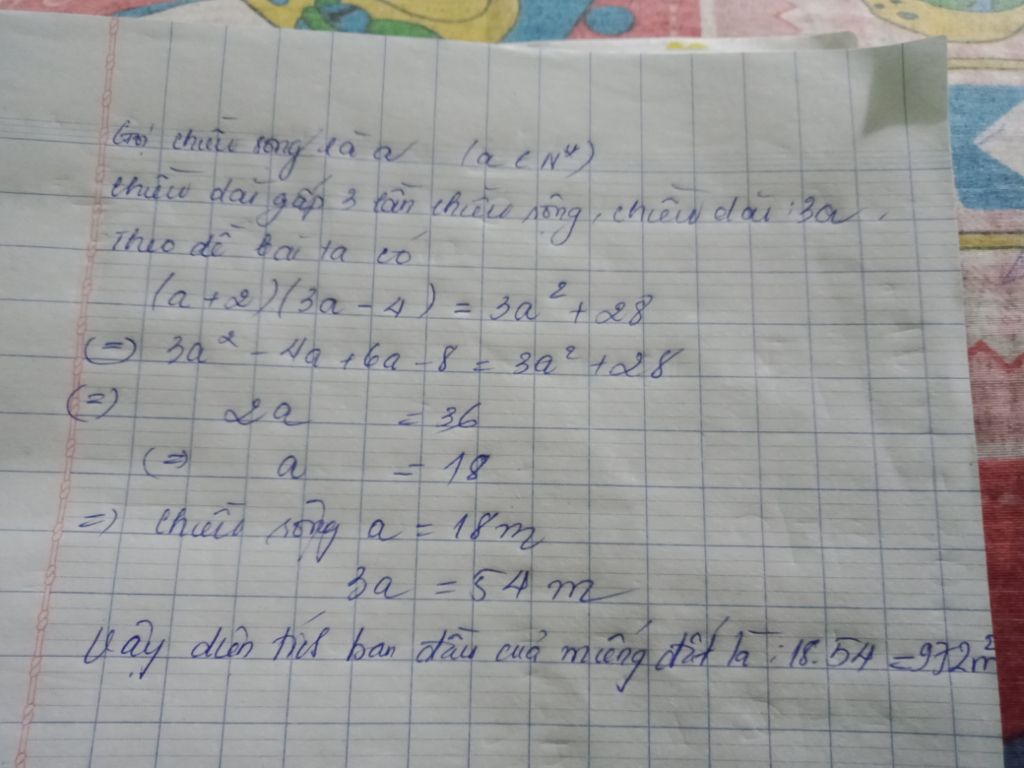 Gọi chiều rộng là a (a ∈ N*)
chiều dài gấp 3 lần chiều rộng, chiều dài : 3a.
Theo đề bài ta có
(a + 2)(3a - 4) = 3a² + 28
(=) 3a² - 4a + 6a - 8 = 3a² + 28
(=) 2a = 36
(=) a = 18
=) chiều rộng a = 18m
3a = 54 m
Vậy diện tích ban đầu của miếng đất là : 18.54 = 972m²